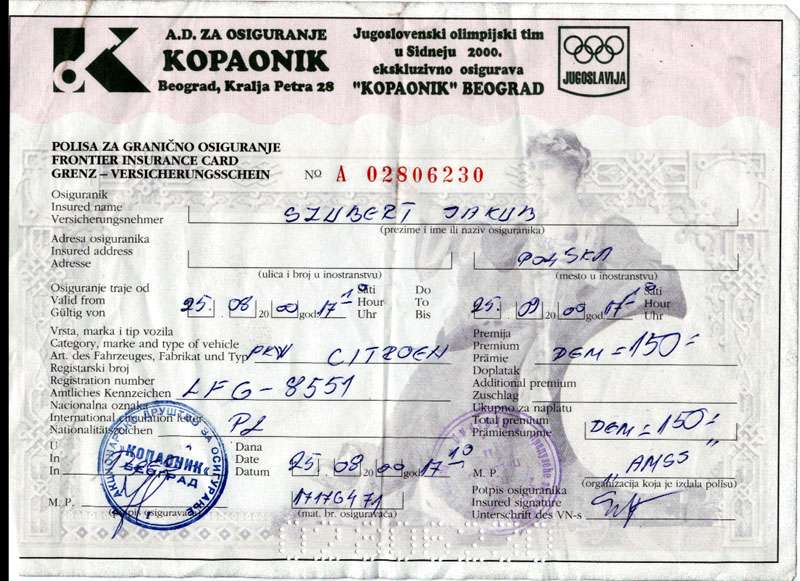 A.D. ZA OSIGURANJE
KOPAONIK
Beograd, Kralja Petra 28
Jugoslovenski olimpijski tim
u Sidneju 2000.
ekskluzivno osigurava
"KOPAONIK" BEOGRAD
JUGOSLAVIJA
POLISA ZA GRANIČNO OSIGURANJE
FRONTIER INSURANCE CARD
GRENZ – VERSICHERUNGSSCHEIN
No A 02806230
Osiguranik
Insured name
Versicherungsnehmer
SZUBERT JAKUB
(prezime i ime ili naziv osiguranika)
Adresa osiguranika
Insured address
Adresse
POLSKA
(ulica i broj u inostranstvu)
(mesto u inostranstvu)
Osiguranje traje od
Valid from
Gültig von
25. 08 2000 god. 17 10
Sati
Hour
Uhr
Do
To
Bis
25. 09 2000 god. 17 10
Sati
Hour
Uhr
Vrsta, marka i tip vozila
Category, marke and type of vehicle
Art. des Fahrzeuges, Fabrikat und Typ
PKW CITROEN
Registarski broj
Registration number
Amtliches Kennzeichen
LFG-8551
Nacionalna oznaka
International circulation letter
Nationalitätszeichen
PL
Premija
Premium
Prämie
DEM = 150 =
Doplatak
Additional premium
Zuschlag
Ukupno za naplatu
Total premium
Prämiensumme
DEM = 150 =
U
In
In
Dana
Date
Datum
25. 08 2000 17 10
AMSS
(organizacija koja je izdala polisu)
M. P.
(potpis osiguravača)
17176471
(mat. br. osiguravača)
M. P.
Potpis osiguranika
Insured signature
Unterschrift des VN-s
"КОПАОНИК"
БЕОГРАД
ДРУШТВО ЗА ОСИГУРАЊЕ